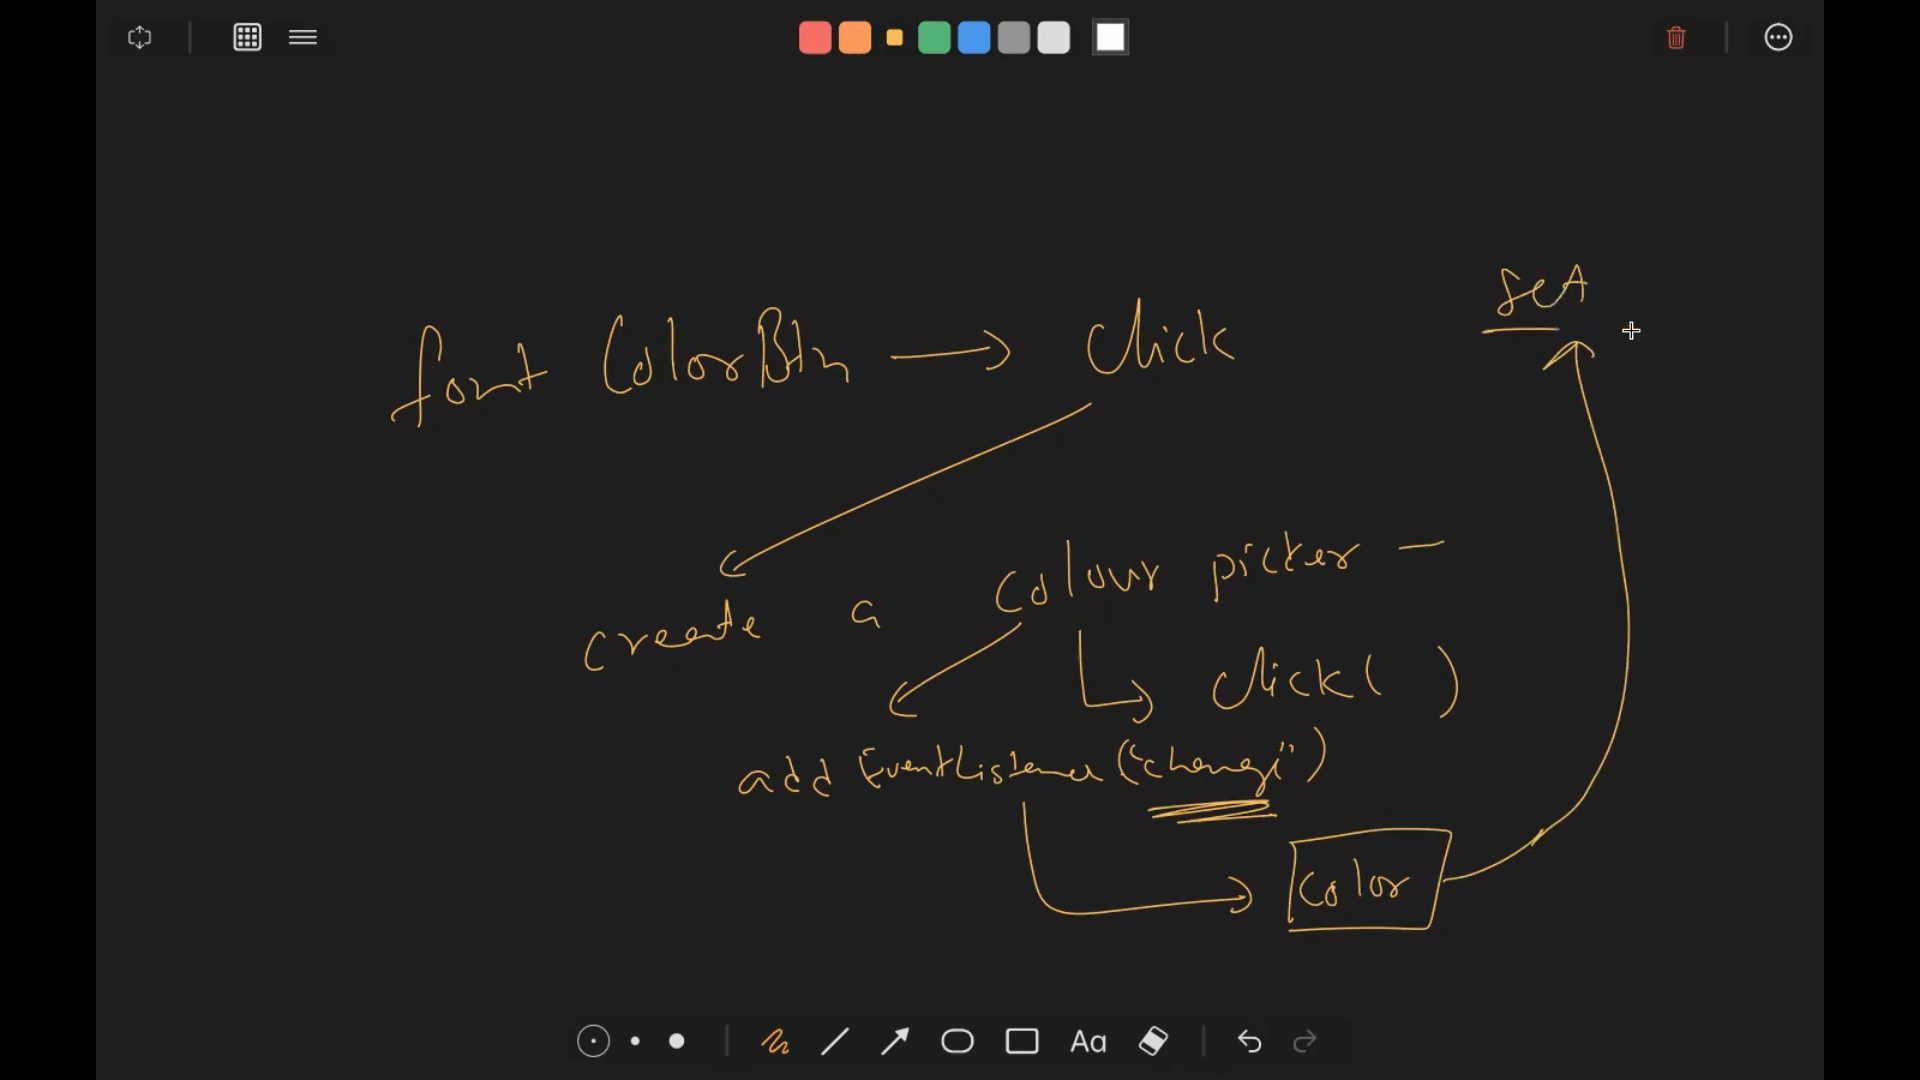 set
font ColorBtn → Click
create a colour picker -
click( )
add EventListener ("change")
color
Aa